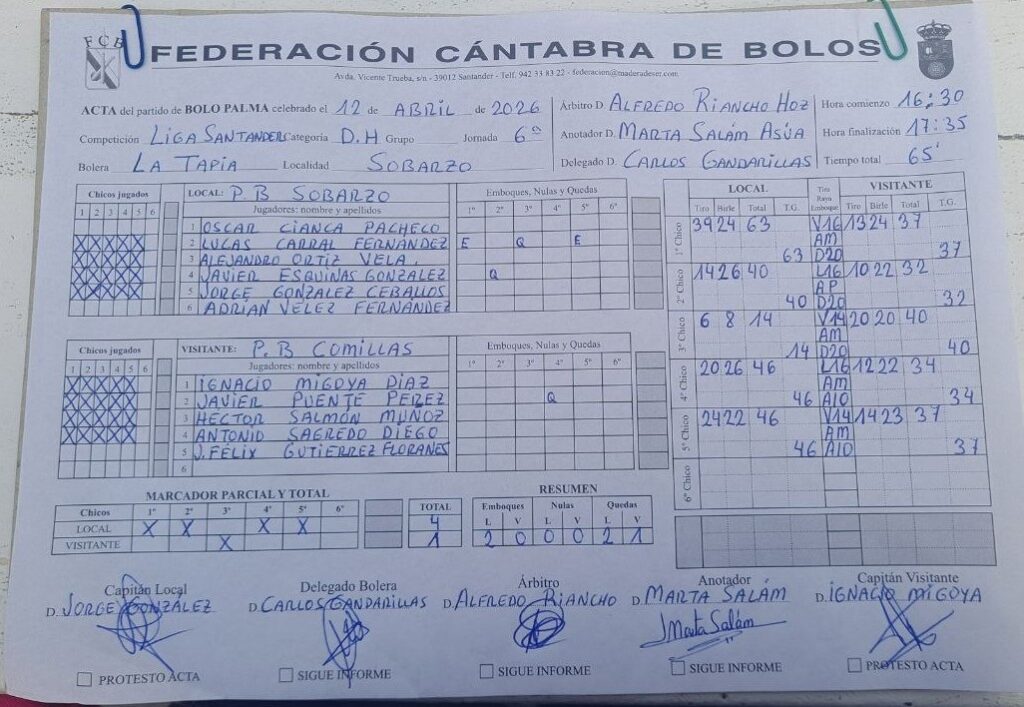 FCB
FEDERACIÓN CÁNTABRA DE BOLOS
Avda. Vicente Trueba, s/n - 39012 Santander - Telf. 942 33 83 22 - federacion@maderadeser.com
ACTA del partido de BOLO PALMA celebrado el 12 de ABRIL de 2026
Competición LIGA SANTANDER Categoría D.H Grupo Jornada 6ª
Bolera LA TAPIA Localidad SOBARZO
Árbitro D. ALFREDO RIANCHO HOZ
Anotador D. MARTA SALÁM ASÚA
Delegado D. CARLOS GANDARILLAS
Hora comienzo 16:30
Hora finalización 17:35
Tiempo total 65'
Chicos jugados
1 2 3 4 5 6
LOCAL: P.B SOBARZO
Jugadores: nombre y apellidos
Emboques, Nulas y Quedas
1º 2º 3º 4º 5º 6º
1 OSCAR CIANCA PACHECO
2 LUCAS CARRAL FERNANDEZ E Q E
3 ALEJANDRO ORTIZ VELA
4 JAVIER ESQUINAS GONZALEZ Q
5 JORGE GONZALEZ CEBALLOS
6 ADRIAN VELEZ FERNANDEZ
Chicos jugados
1 2 3 4 5 6
VISITANTE: P.B COMILLAS
Jugadores: nombre y apellidos
Emboques, Nulas y Quedas
1º 2º 3º 4º 5º 6º
1 IGNACIO MIGOYA DIAZ
2 JAVIER PUENTE PEREZ Q
3 HECTOR SALMÓN MUÑOZ
4 ANTONIO SAGREDO DIEGO
5 J.FÉLIX GUTIERREZ FLORANES
6
LOCAL Tiro Raya Emboque VISITANTE
Tiro Birle Total T.G. Tiro Birle Total T.G.
1º Chico 39 24 63 V16 13 24 37
AM
63 D20 37
2º Chico 14 26 40 L16 10 22 32
AP
40 D20 32
3º Chico 6 8 14 V14 20 20 40
AM
14 D20 40
4º Chico 20 26 46 L16 12 22 34
AM
46 A10 34
5º Chico 24 22 46 V14 14 23 37
AM
46 A10 37
6º Chico
MARCADOR PARCIAL Y TOTAL
Chicos 1º 2º 3º 4º 5º 6º TOTAL
LOCAL X X X X 4
VISITANTE X 1
RESUMEN
Emboques Nulas Quedas
L V L V L V
2 0 0 0 2 1
Capitán Local
D. JORGE GONZÁLEZ
Delegado Bolera
D. CARLOS GANDARILLAS
Árbitro
D. ALFREDO RIANCHO
Anotador
D. MARTA SALÁM
Marta Salám
Capitán Visitante
D. IGNACIO MIGOYA
PROTESTO ACTA
SIGUE INFORME
SIGUE INFORME
SIGUE INFORME
PROTESTO ACTA